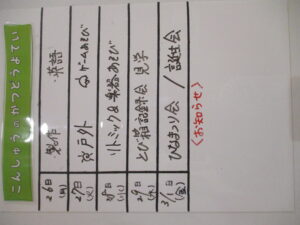 こんしゅうのかつどうよてい
26日(月) 製作 ・英語
27日(火) 戸外 ゲームあそび
28日(水) リトミック&楽器あそび
29日(木) とび箱記録会 見学
3/1日(金) ひなまつり会 / 誕生会
<お知らせ>